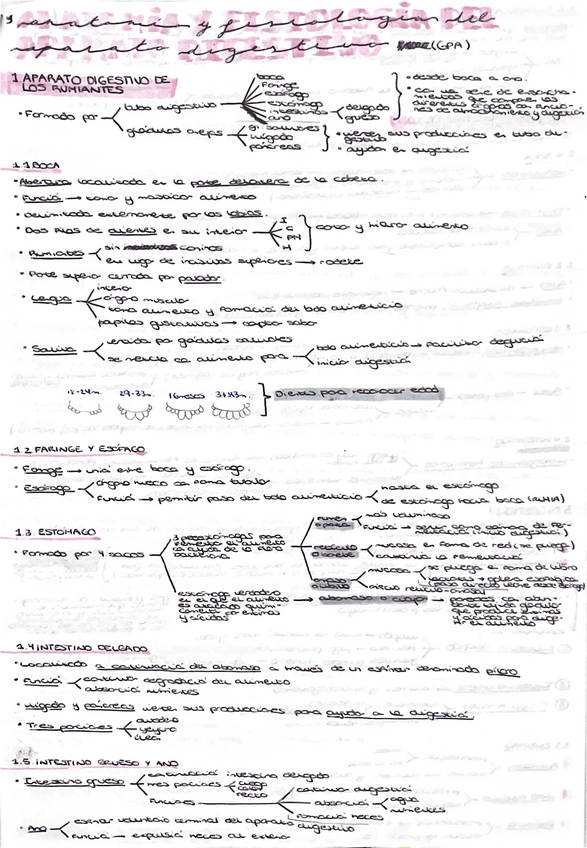 anatomía y fisiología del
aparato digestivo (GPA)
1 APARATO DIGESTIVO DE
LOS RUMIANTES
• Formado por
tubo digestivo
boca
faringe
esófago
estómago
intestinos
ano
delgado
grueso
• desde boca a ano.
glándulas anejas
gl. salivares
hígado
páncreas
• vierten sus producciones en tubo di-
gestivo
• ayudan en digestió
1.1 BOCA
• Abertura localizada en la parte delantera de la cabeza.
• Funció → toma y masticar alimento
• delimitada externamente por los labios.
• Dos filas de dientes en su interior
I
C
PM
M
cortar y triturar alimento
• Rumiantes
sin caninos
en lugar de incisivos superiores → rodete
• Parte superior cerrada por paladar.
• Lengua
interior
órgano muscular
toma alimento y formació del bolo alimenticio
papilas gustativas → captar sabor
• Saliva
vertida por glándulas salivales
se mezcla co alimento para
bolo alimenticio → facilitar deglució
iniciar digestió
18-24m. 29-33m. 16meses
Dientes para reconocer edad
1.2 FARINGE Y ESÓFAGO
• Faringe → unió entre boca y esófago.
• Esófago
órgano hueco co forma tubular
Funció → permitir paso del bolo alimenticio
hasta el estómago
de estómago hacia boca (RUMIA)
1.3. ESTOMAGO
• Formado por 4 sacos
3 preestómagos para
fermentar el alimento
co ayuda de la flora
bacteriana
rumen
o panza
más voluminoso
Funció → servir como cámara de fer-
mentació (inicio digestió)
retículo
mucosa en forma de red (se pliega)
continúa la fermentació
omaso
o libro
mucosa
se pliega en forma de libro
estómago verdadero
en el que el alimento
es atacado quími-
camente por enzimas
y ácidos
→ abomaso o cuajar →
1.4 INTESTINO DELGADO
• Localizado a continuació del abomaso a través de un esfínter denominado píloro
• Funció
continúa degradació del alimento
absorció nutrientes
• Hígado y páncreas vierten sus producciones para ayudar a la digestió.
• Tres porciones
duodeno
yeyuno
íleon
1.5. INTESTINO GRUESO Y ANO
• Intestino grueso
continuació intestino delgado
tres porciones
ciego
colon
recto
funciones
continúa digestió
absorció
agua
nutrientes
formació heces
• Ano
esfínter voluntario terminal del aparato digestivo
funció → expulsió heces al exterior